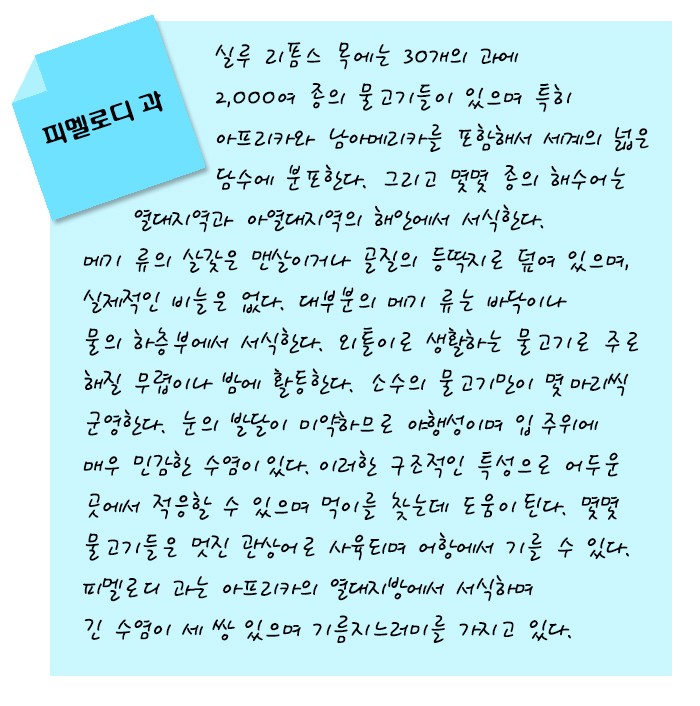 피멜로디 과
실루 리폼스 목에는 30개의 과에
2,000여 종의 물고기들이 있으며 특히
아프리카와 남아메리카를 포함해서 세계의 넓은
담수에 분포한다. 그리고 몇몇 종의 해수어는
열대지역과 아열대지역의 해안에서 서식한다.
메기 류의 살갗은 맨살이거나 골질의 등딱지로 덮여 있으며,
실제적인 비늘은 없다. 대부분의 메기 류는 바닥이나
물의 하층부에서 서식한다. 외톨이로 생활하는 물고기로 주로
해질 무렵이나 밤에 활동한다. 소수의 물고기만이 몇 마리씩
군영한다. 눈의 발달이 미약하므로 야행성이며 입 주위에
매우 민감한 수염이 있다. 이러한 구조적인 특성으로 어두운
곳에서 적응할 수 있으며 먹이를 찾는데 도움이 된다. 몇몇
물고기들은 멋진 관상어로 사육되며 어항에서 기를 수 있다.
피멜로디 과는 아프리카의 열대지방에서 서식하며
긴 수염이 세 쌍 있으며 기름지느러미를 가지고 있다.